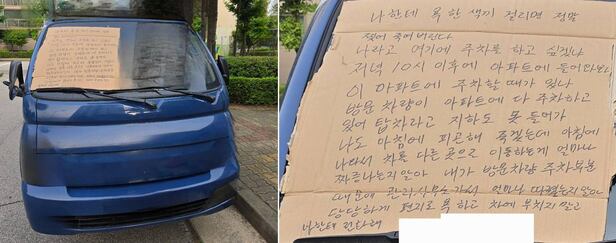 나한테 욕 한 새끼 걸리면 정말
찢어 죽여버린다
나라고 여기에 주차를 하고 싶겠냐
저녁 10시 이후에 아파트에 들어와보니
이 아파트에 주차할 때가 있나
방문 차량이 아파트에 다 주차하고
있어 탑차라고 지하도 못 들어가
나도 아침에 피곤해 죽겠는데 아침에
나와서 차를 다른 곳으로 이동하는게 얼마나
짜증나는지 알아 내가 방문차량 주차문제
때문에 관리사무소가서 얼마나 따졌는지 알아
당당하게 편지로 욕 하고 차에 부치지 말고
나한테 전화해